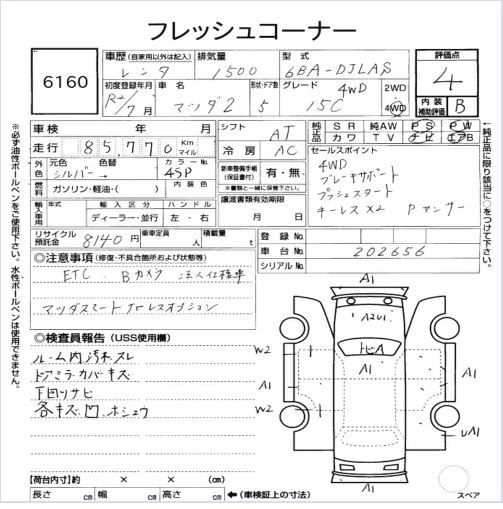 フレッシュコーナー
6160
車歴 (自家用以外は記入) レンタ
排気量 1500
型式 6BA-DJLAS
評価点 4
初度登録年月 R2/7月
車名 マツダ2
形状・ドア 5
グレード 4WD 15C
2WD・4WD
内装補助評価 B
車検 年 月
シフト AT
純正品 SR 純AW PS PW
カワ TV ナビ エアB
走行 85,770 Km マイル
冷房 AC
セールスポイント
4WD
ブレーキサポート
プッシュスタート
キーレスX2 Pセンサー
外色 元色 シルバー → 色替
カラーNo 45P
新車整備手帳(保証書付) 有・無
※書類と一緒に保管して下さい。
燃料 ガソリン・軽油・( ) 内装色
輸入車用 年式 輸入区分 ハンドル
ディーラー・並行 左・右
譲渡書類有効期限
月 日
リサイクル預託金 8140円
乗車定員 人
積載量 t
登録No.
車台No. 202656
シリアルNo.
◎注意事項 (修復・不具合箇所および状態等)
ETC Bカメラ 法人仕様車
◎検査員報告 (USS使用欄)
ルーム内汚れスレ
ドアミラーカバーキズ
下回リサビ
各キズ凹ホシュウ
A1
A2U1
W2
トビA
A1
A1
A1
W2
UA1
A1
スペア
【荷台内寸】約 × × (cm)
長さ cm 幅 cm 高さ cm ←(車検証上の寸法)
※必ず油性ボールペンをご使用下さい。水性ボールペンは使用できません。
※純正品に限り該当に○をつけて下さい。